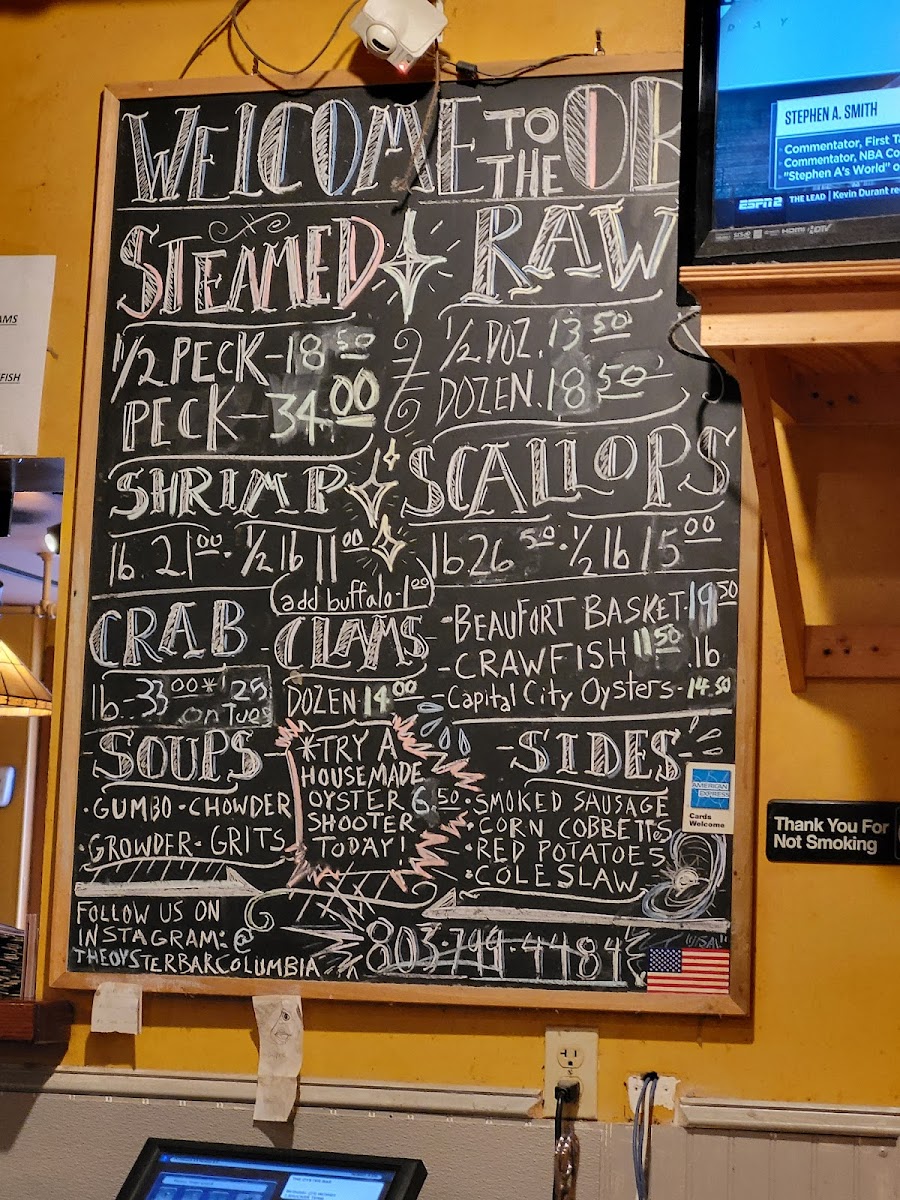 WELCOME TO THE OB
STEAMED
1/2 PECK-18 50
PECK-34.00
RAW
1/2 DOZ. 13 50
DOZEN. 18 50
SHRIMP
lb. 21 00 · 1/2 lb 11 00
add buffalo-1 00
SCALLOPS
lb 26 50 · 1/2 lb 15 00
CRAB
lb. 33 00 * 25
on Tues
CLAMS
DOZEN 14 00
-BEAUFORT BASKET·19 50
-CRAWFISH 11 50 .lb
-Capital City Oysters-14.50
SOUPS
·GUMBO·CHOWDER
·GROWDER·GRITS
*TRY A
HOUSEMADE
OYSTER 6.50
SHOOTER
TODAY!
-SIDES-
·SMOKED SAUSAGE
·CORN COBBETTS
·RED POTATOES
·COLESLAW
FOLLOW US ON
INSTAGRAM: @
THEOYSTERBARCOLUMBIA
803·799·4484
"USA"
AMERICAN
EXPRESS
Cards
Welcome
Thank You For
Not Smoking
STEPHEN A. SMITH
Commentator, First Ta
Commentator, NBA Co
"Stephen A's World" o
ESPN2 THE LEAD | Kevin Durant re
HDMI
AMS
FISH